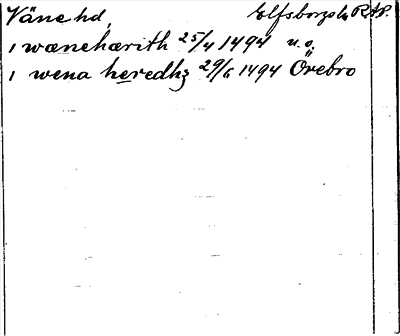 Väne hd, Elfsborgs l. RAP.
i wænehærith 25/4 1494 u.o.
i wena heredhz 29/6 1494 Örebro